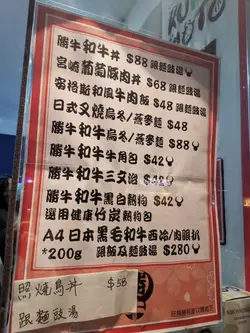 勝牛和牛丼 $88 跟麵豉湯
宮崎葡萄豚肉丼 $68 跟麵豉湯
安格斯和風牛肉飯 $48 跟麵豉湯
日式叉燒烏冬/蕎麥麵 $48
勝牛和牛烏冬/蕎麥麵 $88
勝牛和牛牛角包 $42
勝牛和牛三文治 $42
勝牛和牛黑白熱狗 $42
選用健康竹炭熱狗包
A4日本黑毛和牛西冷/肉眼扒
*200g 跟飯及麵豉湯 $280
照燒鳥丼 $58
跟麵豉湯